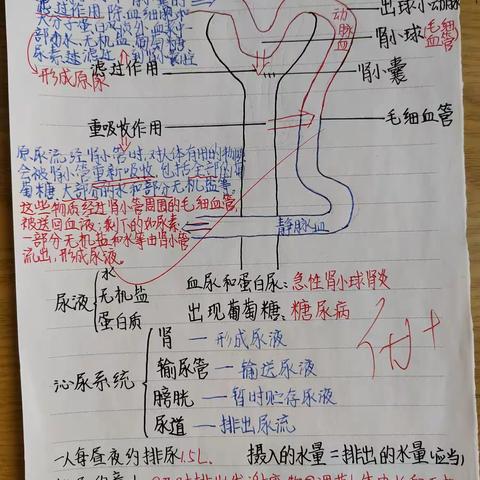 滤过作用 除血细胞和
大分子蛋白质外,血浆中一
部分水、无机盐、葡萄糖
形成原尿
滤过作用
动脉血
出球小动脉
肾小球 毛细血管
肾小囊
重吸收作用
毛细血管
原尿流经肾小管时,对人体有用的物质
会被肾小管重新吸收,包括全部的葡
萄糖,大部分的水和部分无机盐等,
这些物质经过肾小管周围的毛细血管,
被送回血液;剩下的如尿素、
一部分无机盐和水等由肾小管
流出,形成尿液。
静脉血
尿液
水
无机盐
蛋白质
血尿和蛋白尿:急性肾小球肾炎
出现葡萄糖:糖尿病
沁尿系统
肾 — 形成尿液
输尿管 — 输送尿液
膀胱 — 暂时贮存尿液
尿道 — 排出尿流
一人每昼夜约排尿1.5L. 摄入的水量=排出的水量(应当)